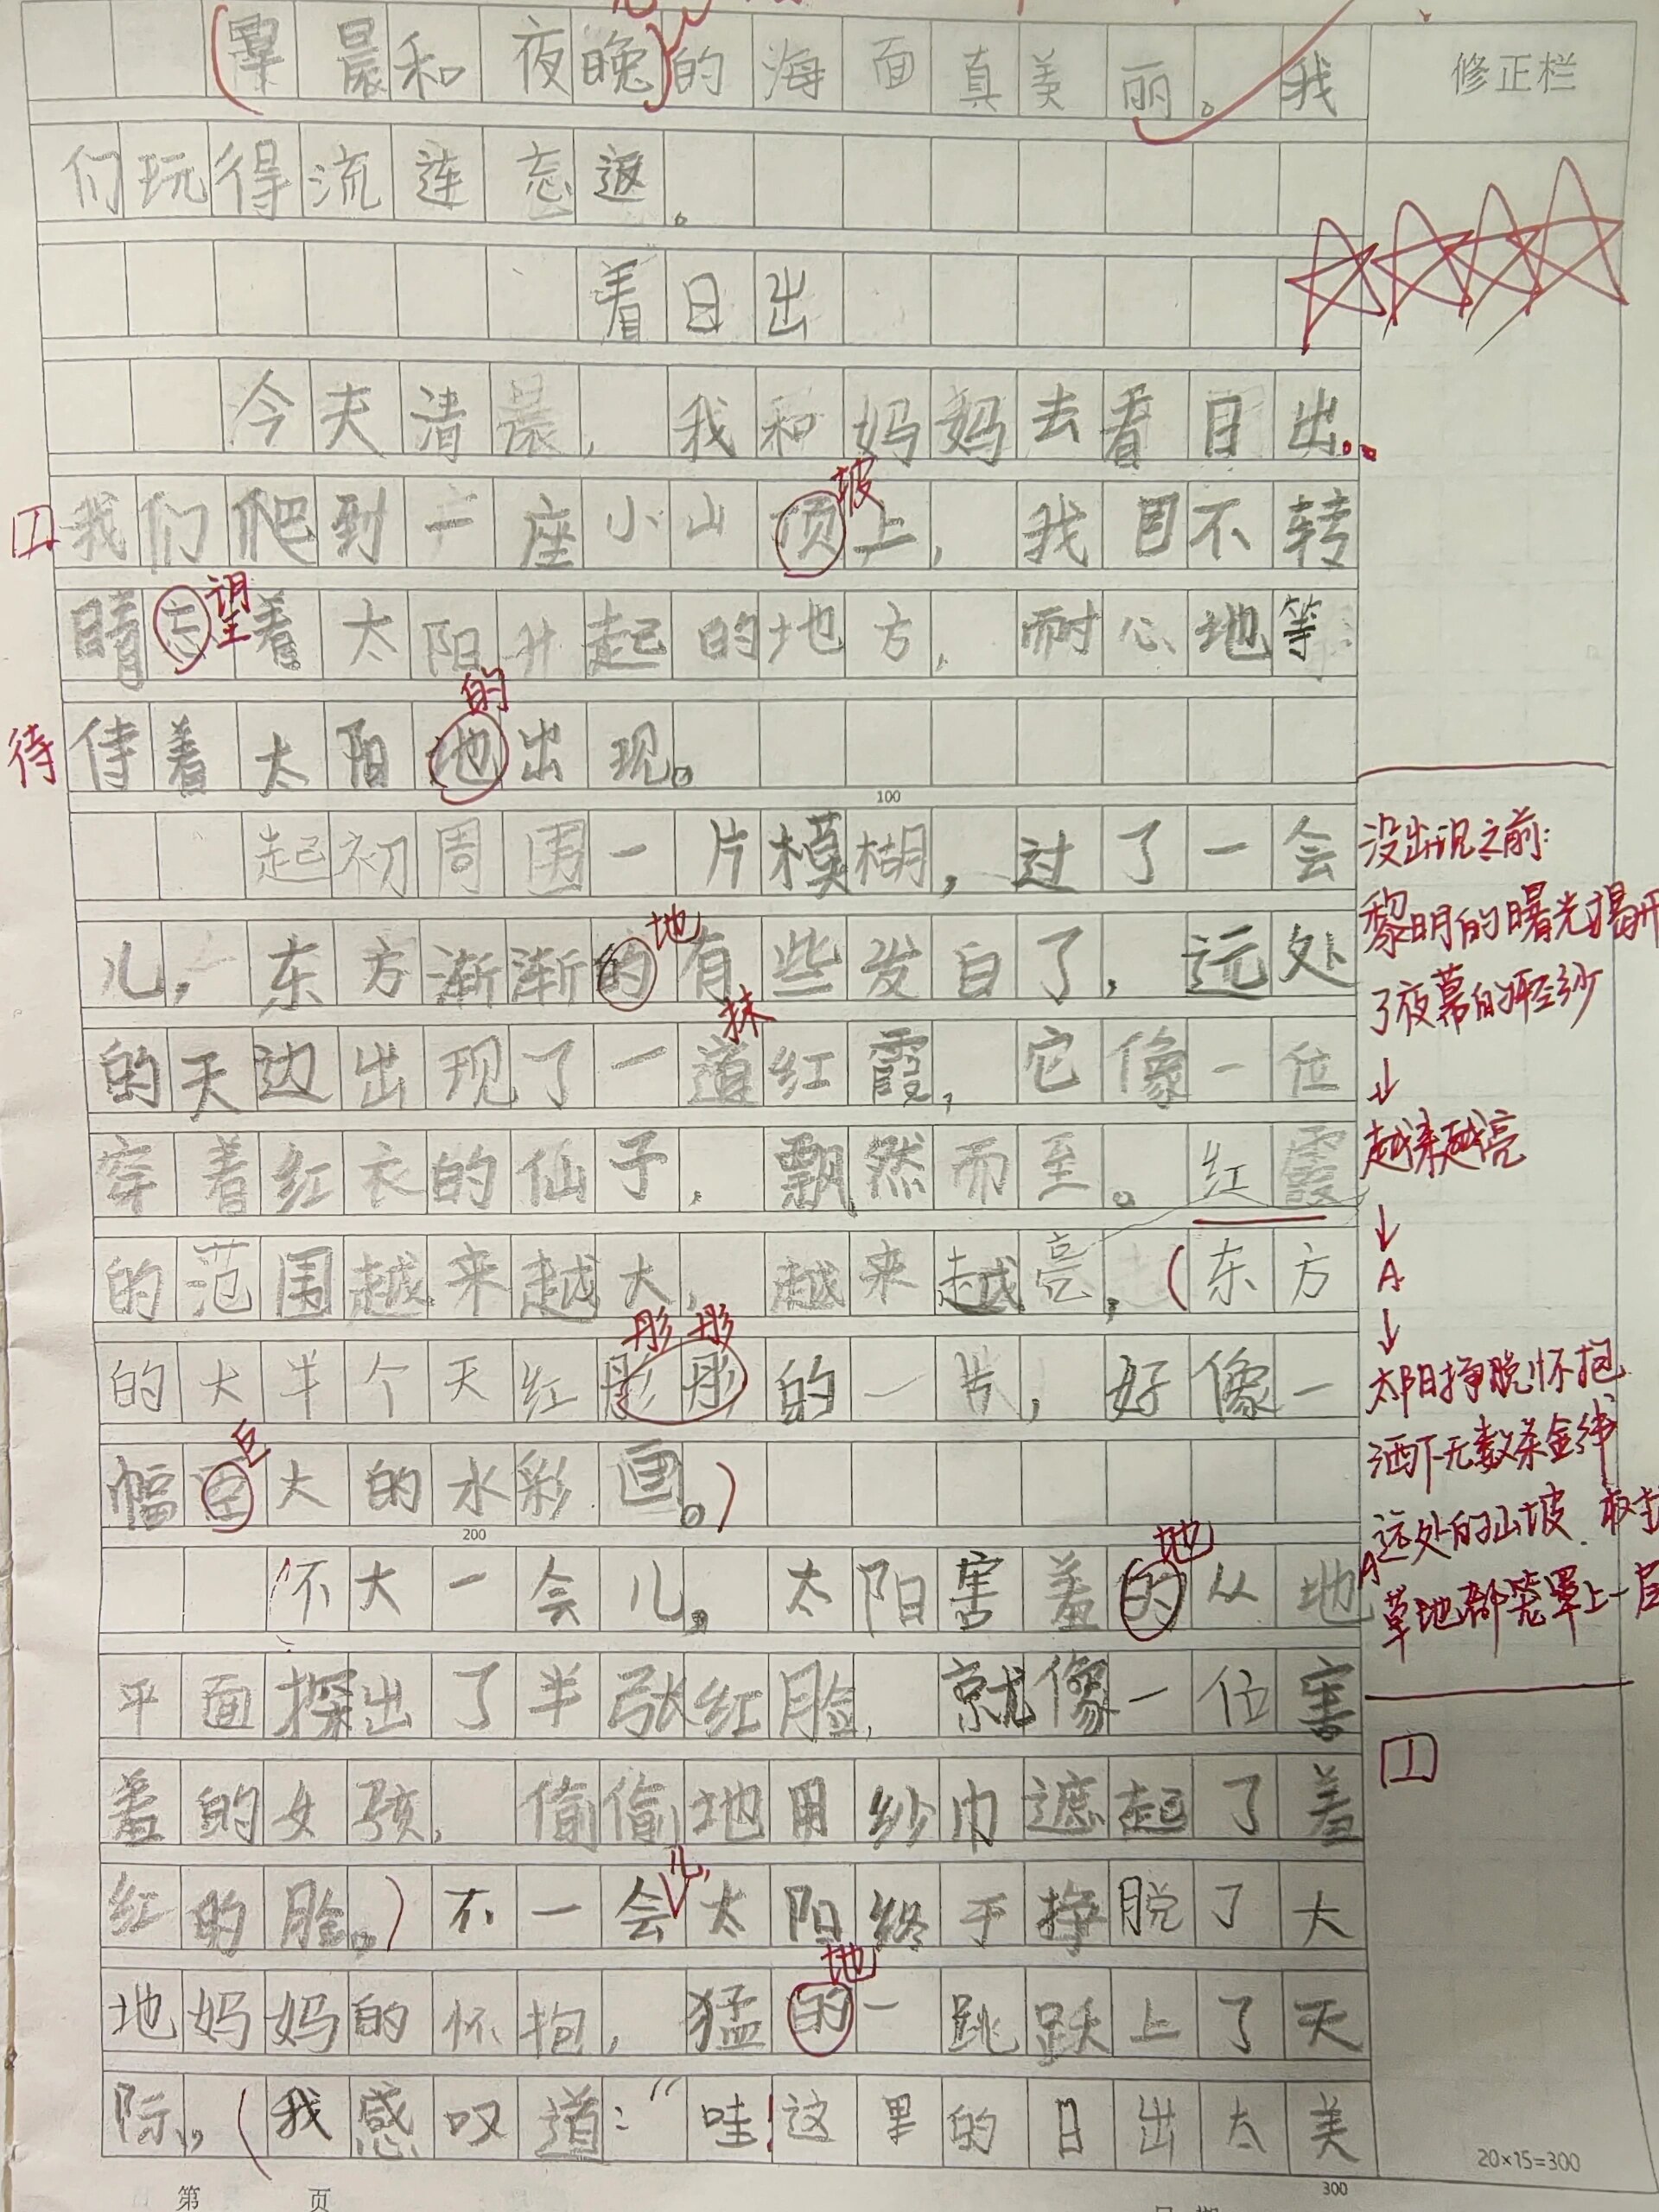 (晨和夜晚)的海面真美丽。我
修正栏
们玩得流连忘返。
看日出
今天清晨,我和妈妈去看日出.
坡
我们爬到一座小山顶上,我目不转
望
睛忘着太阳升起的地方,耐心地等
的
待
侍着太阳地出现。
100
起初周围一片模糊,过了一会
地
儿,东方渐渐的有些发白了,远处
抹
的天边出现了一道红霞,它像一位
穿着红衣的仙子,飘然而至。红霞
的范围越来越大,越来越亮,(东方
彤彤
的大半个天红彤彤的一片,好像一
巨
幅大的水彩画。)
200
地
不大一会儿,太阳害羞的从地
平面探出了半张红脸,就像一位害
羞的女孩,偷偷地用纱巾遮起了羞
儿,
红的脸。)不一会太阳终于挣脱了大
地
地妈妈的怀抱,猛的一跳跃上了天
际。(我感叹道:“哇!这里的日出太美
没出现之前:
黎明的曙光揭开
了夜幕的轻纱
↓
越来越亮
↓
A
↓
太阳挣脱怀抱
洒下无数条金纬
远处的山坡.
草地都笼罩上一层
1
20×15=300
第 页
300